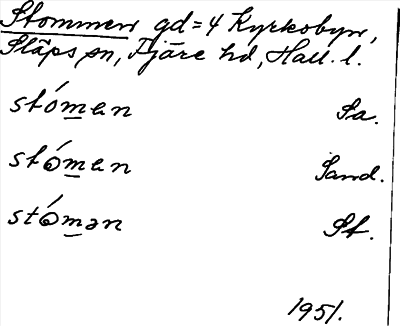 Stommen gd = 4 Kyrkobyn,
Släps sn, Fjäre hd, Hall. l.
stómen Sa.
stómen Sand.
stómən St.
1951.